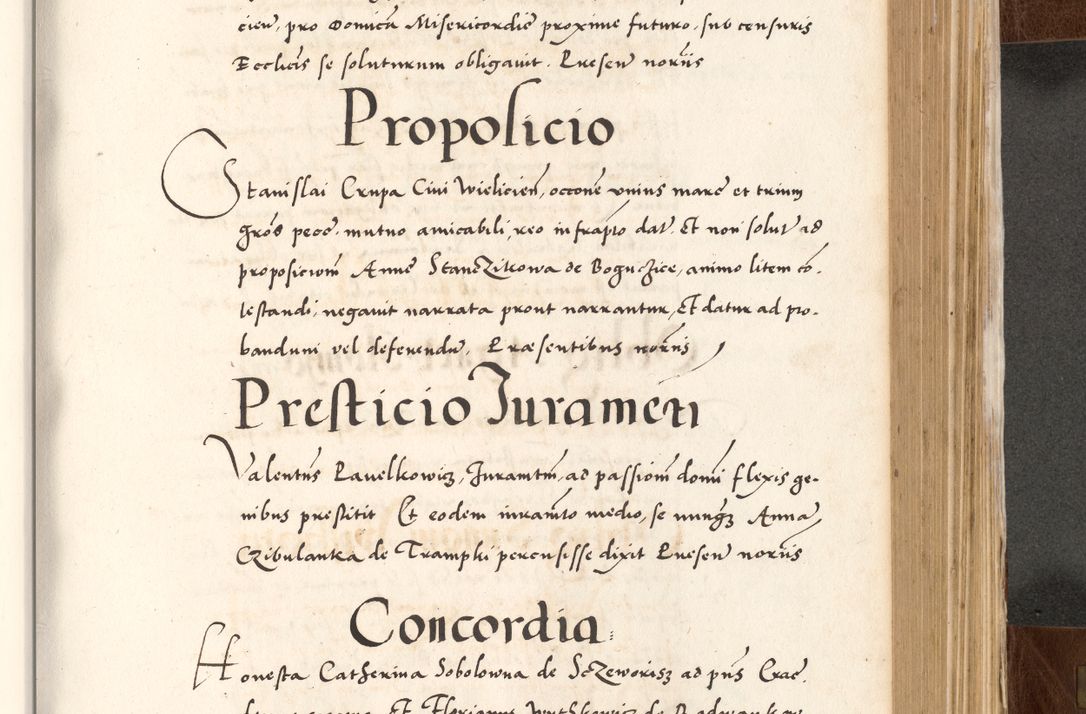 cien, pro Domica Misericordie proxime futuro, sub censuris
Ecclicis se soluturum obligauit. Presen noriis
Proposicio
Stanislai Crupa Ciui Wielicien, occone vnius marc et trium
gros pecc. mutuo amicabili, reo infrapto dat. Et non solut ad
proposiciom Anne StancZikowa de BogucZice, animo litem co.
testandi, negauit narrata prout narrantur, Et datur ad pro.
bandum vel deferendu, Præsentibus noriis
Presticio Iurameti
Valentus Pauelkowicz, Iuramtm, ad passiom domi flexis ge-
nibus prestitit Et eodem iuramto medio, se nunqz Anna
CZibulanka de Trampki percusisse dixit Presen noriis
Concordia
Honesta Catherina Sobolowna de SczeworisZ ad pns Crac.
Et Florianus